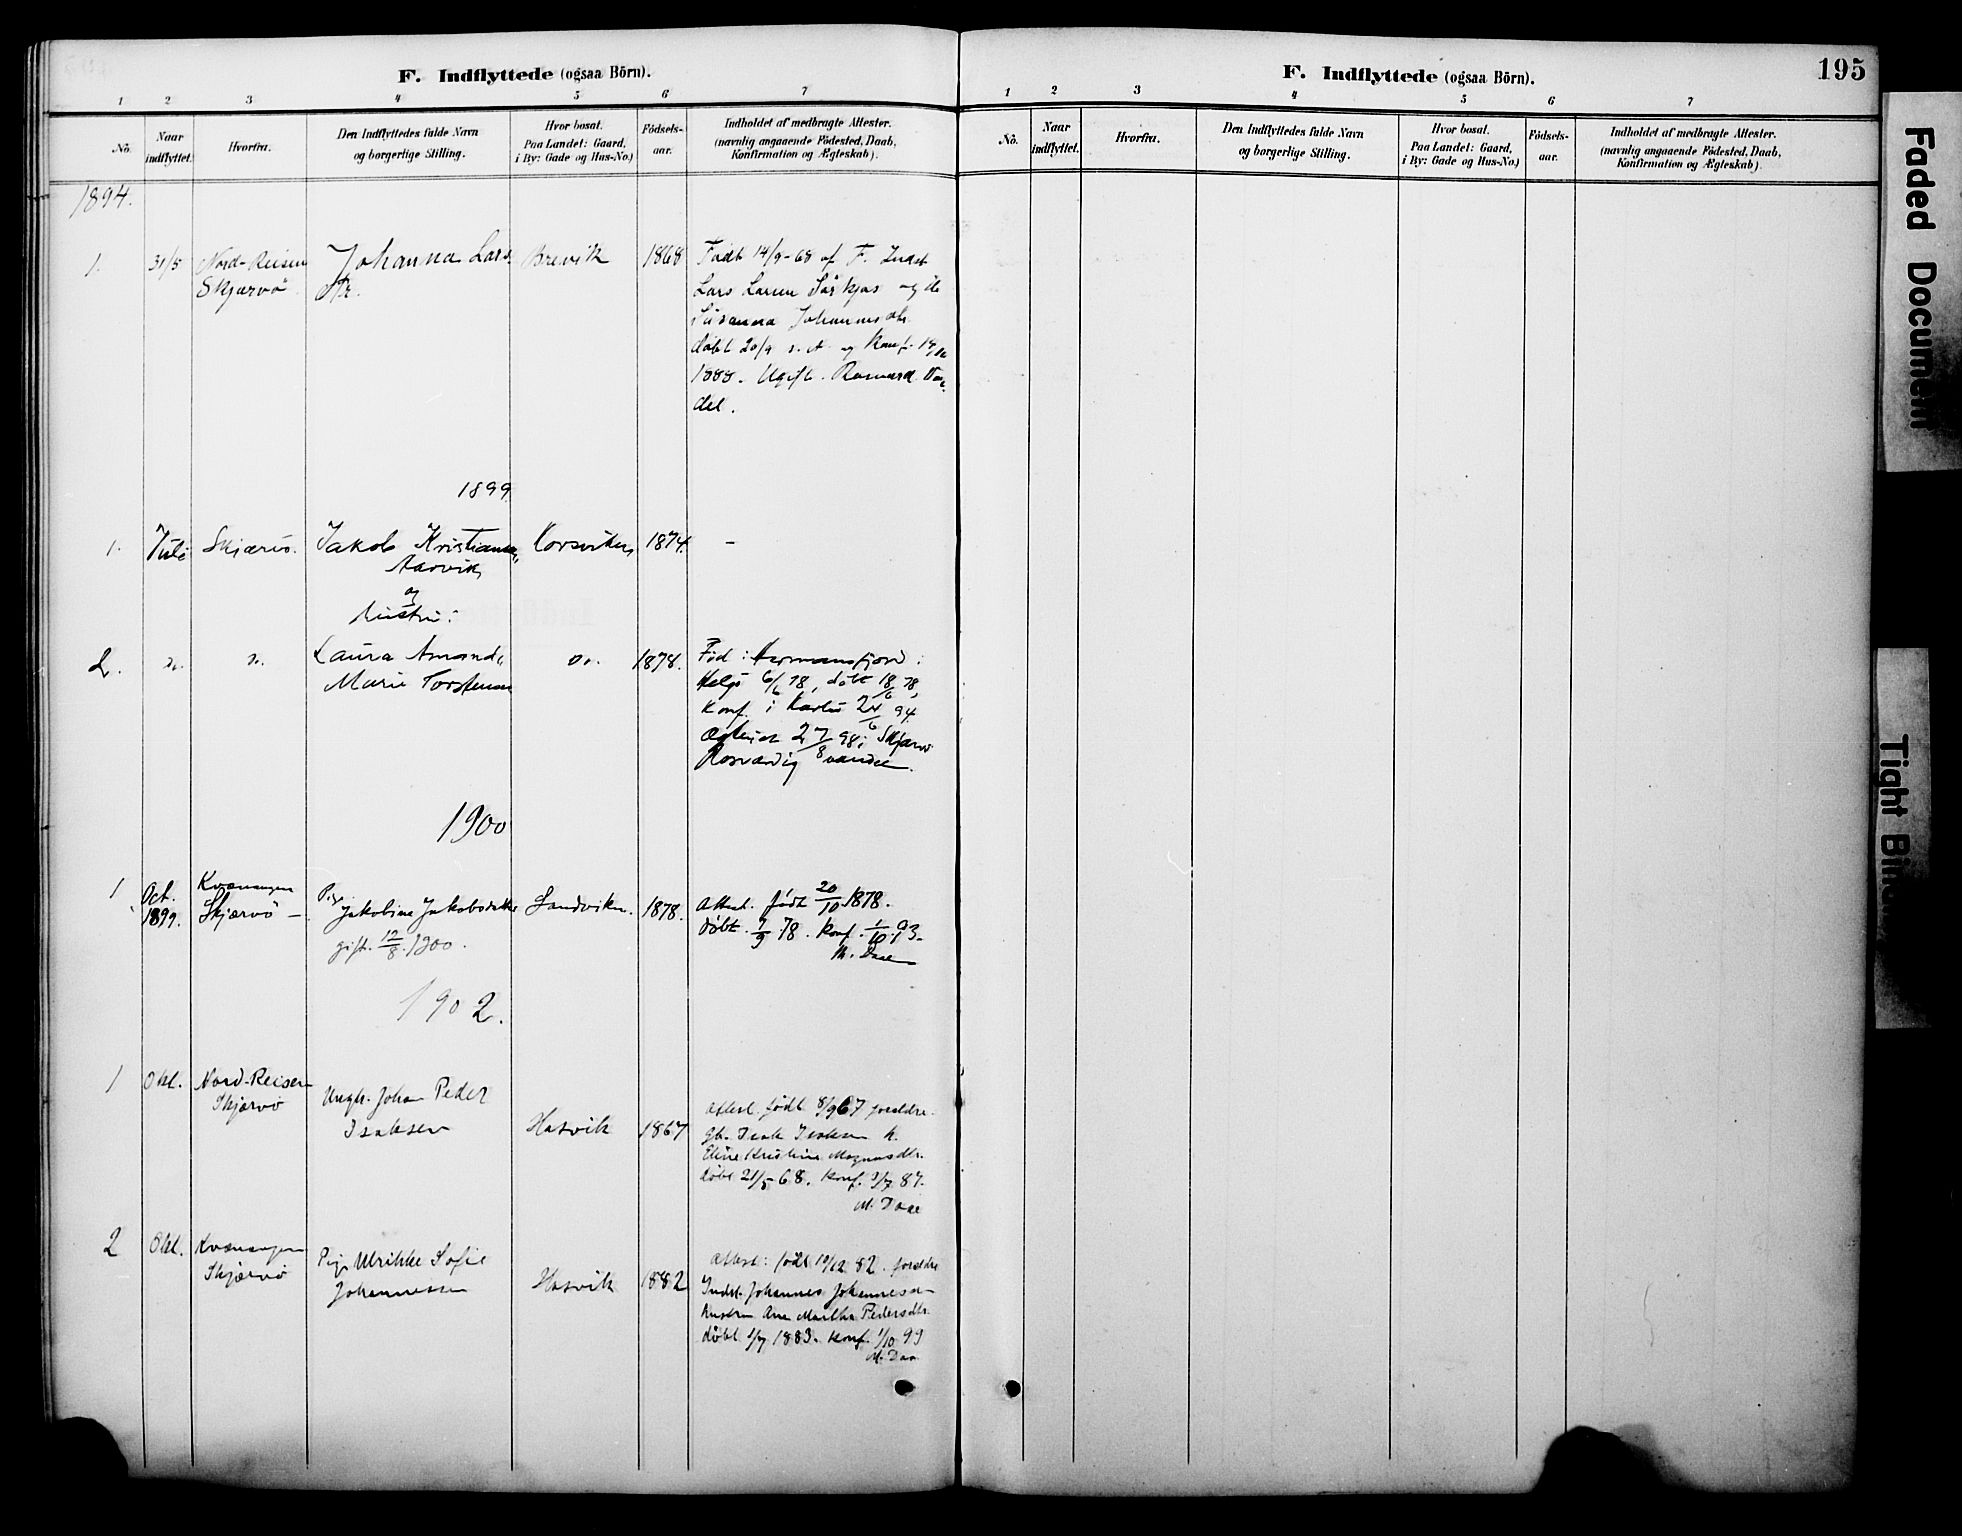 F. Indflyttede (ogsaa Börn).
1 2 3 4 5 6 7
No.
Naar indflyttet.
Hvorfra.
Den Indflyttedes fulde Navn
og borgerlige Stilling.
Hvor bosat.
Paa Landet: Gaard,
i By: Gade og Hus-No.)
Födsels-
aar.
Indholdet af medbragte Attester.
(navnlig angaaende Födested, Daab,
Konfirmation og Ægteskab).
1894.
1. 31/5 Nord-Reisen Johanna Lars Brevik 1868 Födt 14/9-68 af F. Indst
Skjærvö
Lars Larsen og
Susanna Johannesdtr
döbt 20/9 s. A. og Konf.
1888. Ugift.
del.
1899
1. Juli Skjærvö. Jakob Kristiansen Korsviken 1874. –
Aarvik
og
Hustru:
2. Do. Do. Laura Amanda Do. 1878. Föd i Hermansfjord i
Marie Torstensen
Helgö 6/6 78, döbt 18/6 78,
Konf. i Karlsö 24/6 94.
27/8 98 i Skjærvö
vandel.
1900
1 Oct. 1899. Kvænangen
Skjærvö –
Pige
Jakobine Jakobsdatter Sandviken. 1878. Attest. födt 20/10 1878.
gift. 12/8 1900.
döbt. 78. Konf. 1/10 93-
M. Daae
1902.
1 Okt. Nord-Reisen
Skjærvö
Ungk. Johan Peder
Isaksen Hasvik 1867
Attest. födt 8/9 67 foreldre
gb. Isak Isaksen h.
Eline Kristine Magnusdtr.
döbt 21/5 68. Konf. 3/7 87.
M. Daae
2 Okt. Kvænangen
Skjærvö
Pige Ulrikke Sofie
Johannessen Hasvik 1882
Attest: födt 10/12 82. foreldre
Indst. Johannes Johannesen
Hustru Ane Martha Pedersdtr.
döbt 1/7 1883. Konf. 1/10 99
M. Daae
195
F. Indflyttede (ogsaa Börn).
1 2 3 4 5 6 7
No.
Naar indflyttet.
Hvorfra.
Den Indflyttedes fulde Navn
og borgerlige Stilling.
Hvor bosat.
Paa Landet: Gaard,
i By: Gade og Hus-No.)
Födsels-
aar.
Indholdet af medbragte Attester.
(navnlig angaaende Födested, Daab,
Konfirmation og Ægteskab).
Faded Document
Tight